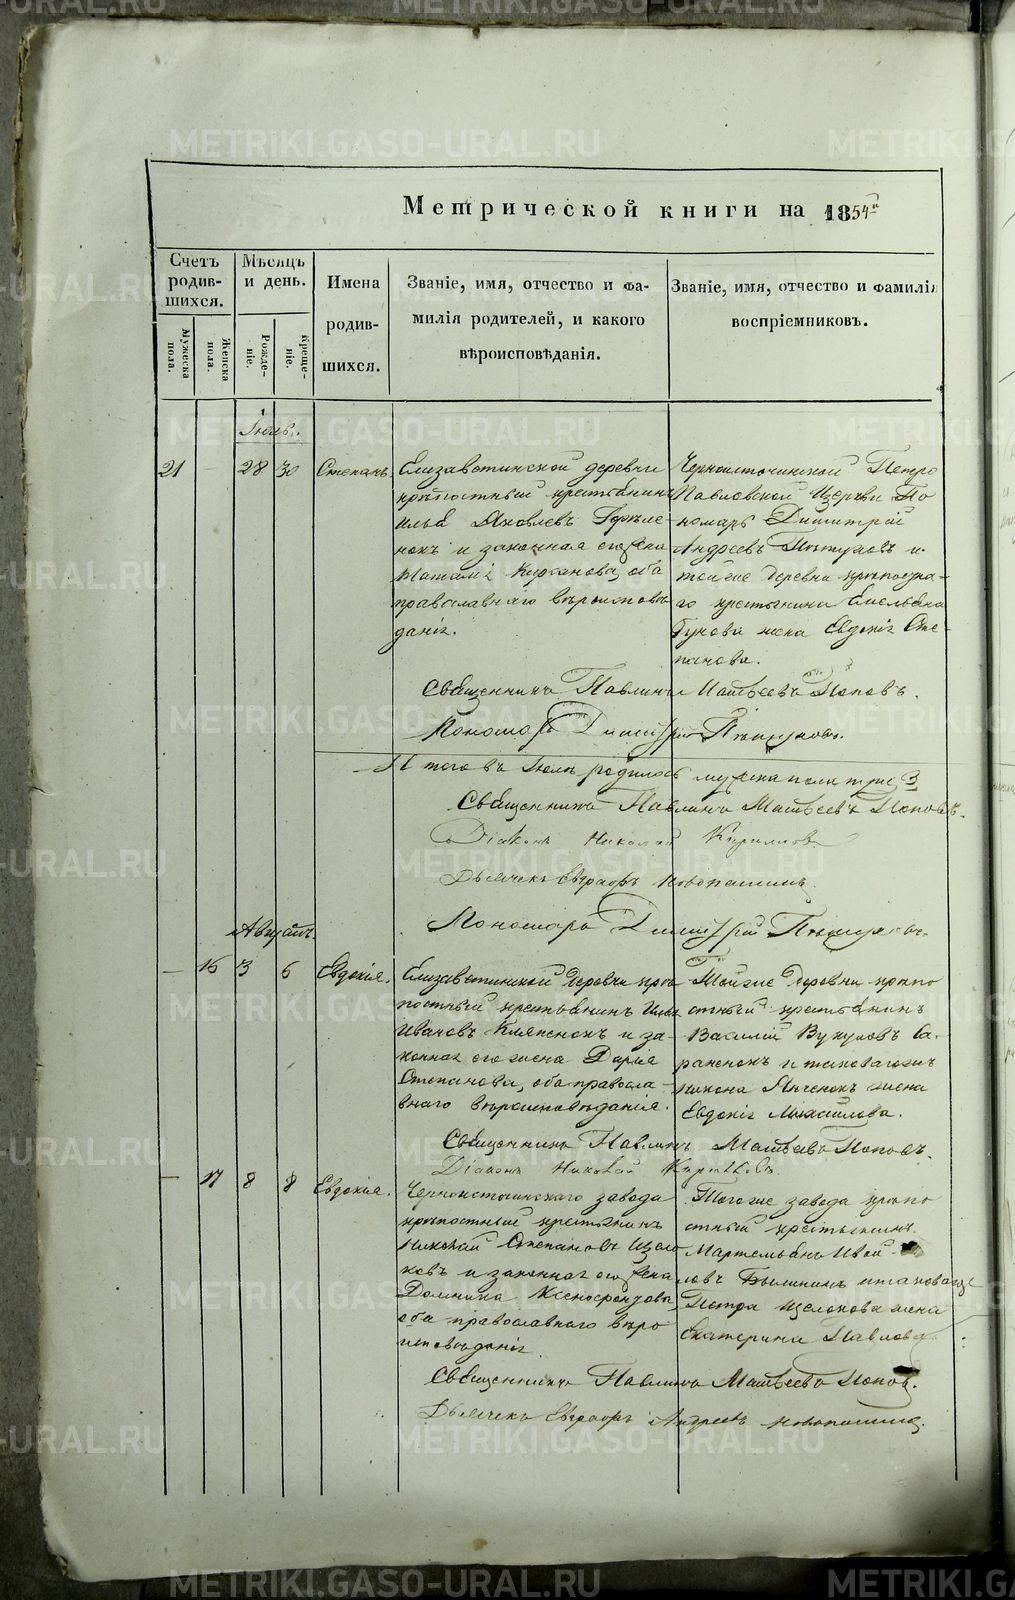 METRIKI.GASO-URAL.RU
Метрической книги на 1854й
Счетъ родив-шихся.
Мужеска пола.
Женска пола.
Мѣсяцъ и день.
Рожде-ніе.
Креще-ніе.
Имена родив-шихся.
Званіе, имя, отчество и фа-
милія родителей, и какого
вѣроисповѣданія.
Званіе, имя, отчество и фамилія
воспріемниковъ.
Іюль.
21 - 28 30 Степанъ
Елизаветинской деревни
крѣпостный крестьянинъ
Илья Яковлевъ
и законная его жена
оба
православнаго вѣроисповѣ
данія.
Черноисточинской Петро
Павловской Церкви По
номарь Димитрій
Андреевъ Пѣтуховъ и
тойже деревни крѣпостна-
го крестьянина Емельяна
жена Евдокія Сте-
панова.
Священникъ Павлинъ Матвеевъ Поповъ.
Пономарь Димитрій Пѣтуховъ.
Итого въ Іюлѣ родилось мужеска пола три 3
Священникъ Павлинъ Матвеевъ Поповъ.
Діаконъ Николай Кирилловъ
Дьячекъ Евграфъ Новопашинъ.
Пономарь Димитрій Пѣтуховъ.
Августъ.
- 16 3 6 Евдокія.
Елизаветинской деревни крѣ
постный крестьянинъ
Ивановъ и за
конная его жена Дарья
Степанова, оба правосла-
внаго вѣроисповѣданія.
Тойже деревни крѣпо
стный крестьянинъ
Василій Вукуловъ Са-
раненокъ и таковагожъ
жена
Евдокія Михайлова.
Священникъ Павлинъ Матвеевъ Поповъ.
Діаконъ Николай Кирилловъ.
- 17 8 8 Евдокія.
Черноисточинскаго завода
крѣпостный крестьянинъ
Николай Степановъ Щело
ковъ и законная его жена
Домника Ксенофонтова,
оба православнаго вѣро
исповѣданія.
Тогоже завода крѣпо
стный крестьянинъ
Мартемьянъ
ловъ и таковагоже
Петра Щелокова жена
Екатерина Павлова.
Священникъ Павлинъ Матвеевъ Поповъ.
Дьячекъ Евграфъ Андреевъ Новопашинъ.